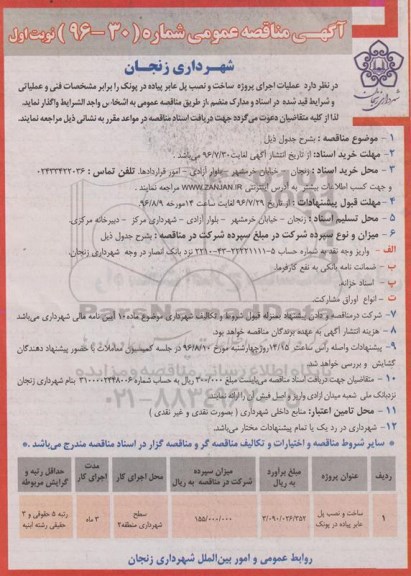 آگهی مناقصه عمومی شماره ( ۳۰ - ۹۶ ) نوبت اول
شهرداری زنجان
شهرداری زنجان
در نظر دارد عملیات اجرای پروژه ساخت و نصب پل عابر پیاده در پونک را برابر مشخصات فنی و عملیاتی
و شرایط قید شده در اسناد و مدارک منضم، از طریق مناقصه عمومی به اشخاص واجد الشرایط واگذار نماید.
لذا از کلیه متقاضیان دعوت می گردد جهت دریافت اسناد مناقصه در مواعد مقرر به نشانی ذیل مراجعه نمایند.
۱ - موضوع مناقصه : بشرح جدول ذیل
۲- مهلت خرید اسناد: از تاریخ انتشار آگهی لغایت ۹۶/۷/۳۰ می باشد .
۳- محل خرید اسناد : زنجان - خیابان خرمشهر - بلوار آزادی - امور قراردادها. تلفن تماس : ۰۲۴۳۳۴۲۲۰۳۶
و جهت کسب اطلاعات بیشتر به آدرس اینترنتی WWW.ZANJAN.IR مراجعه نمایند .
۴- مهلت قبول پیشنهادات : از تاریخ ۹۶/۷/۲۹ لغایت ساعت ۱۴ مورخه ۹۶/۸/۹
۵- محل تسلیم اسناد : زنجان - خیابان خرمشهر - بلوار آزادی - شهرداری مرکز - دبیرخانه مرکزی.
۶ - میزان و نوع سپرده شرکت در مبلغ سپرده شرکت در مناقصه : بشرح جدول ذیل
الف - واریز وجه نقد به شماره حساب نزد بانک انصار در وجه شهرداری زنجان.
ب - ضمانت نامه بانکی به نفع کارفرما.
پ - اسناد خزانه.
ت - انواع اوراق مشارکت.
۷ - شرکت در مناقصه و دادن پیشنهاد بمنزله قبول شروط و تکالیف شهرداری موضوع ماده ۱۰ آیین نامه مالی شهرداری می باشد
۸ - هزینه انتشار آگهی به عهده برندگان مناقصه خواهد بود.
۹ - پیشنهادات واصله رأس ساعت ۱۴/۱۵ روز چهارشنبه مورخ ۹۶/۸/۱۰ در جلسه کمیسیون معاملات با حضور پیشنهاد دهندگان
گشایش و بررسی خواهد شد.
۱۰ - متقاضیان جهت دریافت اسناد مناقصه می بایست مبلغ ۳۰۰/۰۰۰ ریال به حساب شماره ۳۱۰۰۰۰۲۲۴۸۰۰۶ بنام شهرداری زنجان
نزد بانک ملی شعبه میدان آزادی واریز و اصل فیش آن را ارائه نمایند.
۱۱- محل تامین اعتبار: منابع داخلی شهرداری ( بصورت نقدی و غیر نقدی )
۱۲- شهرداری در رد یک یا تمام پیشنهادات مختار می باشد.
* سایر شروط مناقصه و اختیارات و تکالیف مناقصه گر و مناقصه گزار در اسناد مناقصه مندرج می باشد .*
ردیف عنوان پروژه مبلغ برآورد به ریال میزان سپرده شرکت در مناقصه به ریال محل اجرای کار مدت اجرای کار حداقل رتبه و گرایش مربوطه
۱ ساخت و نصب پل عابر پیاده در پونک ۳/۰۹۰/۰۲۶/۳۵۲ ۱۵۵/۰۰۰/۰۰۰ سطح شهرداری منطقه۲ ۳ ماه رتبه ۵ حقوقی و ۳ حقیقی رشته ابنیه
روابط عمومی و امور بین الملل شهرداری زنجان